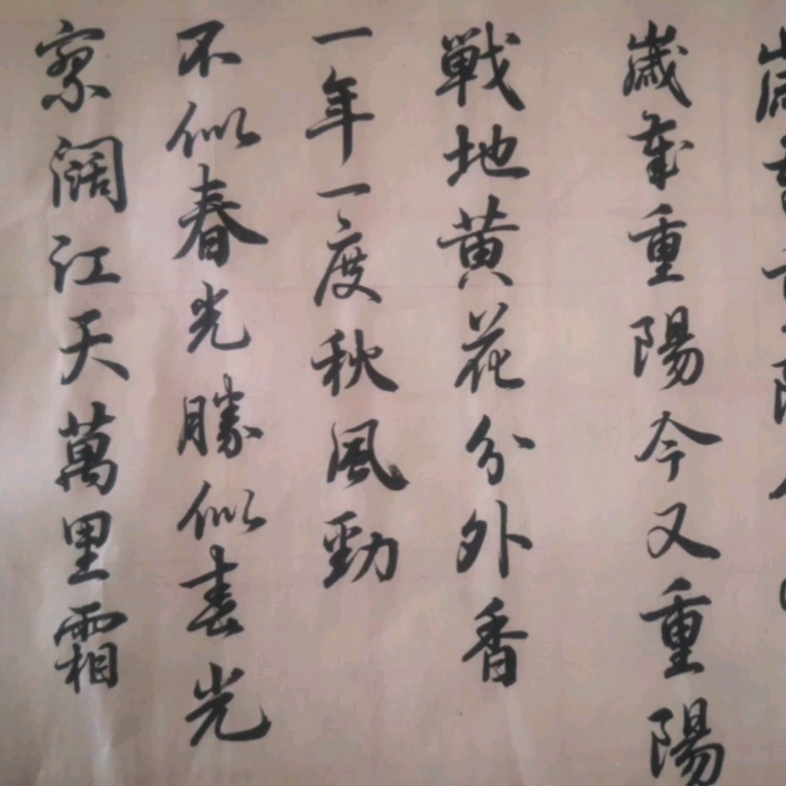 歲歲重陽今又重陽
戰地黃花分外香
一年一度秋風勁
不似春光勝似春光
寥闊江天萬里霜